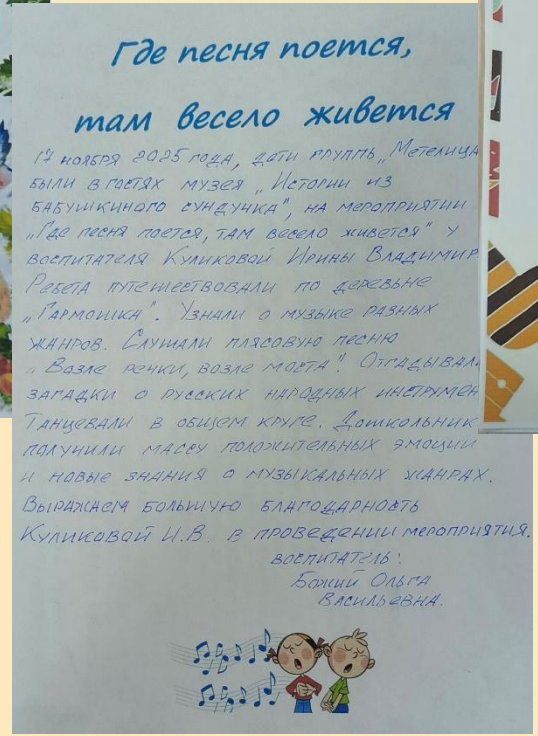 Где песня поется,
там весело живется
17 ноября 2025 года, дети группы „Метелица
были в гостях музея „Истории из
бабушкиного сундучка", на мероприятии
„Где песня поется, там весело живется" у
воспитателя Куликовой Ирины Владимир
Ребята путешествовали по деревне
„Гармошка". Узнали о музыке разных
жанров. Слушали плясовую песню
„Возле речки, возле моста". Отгадывал
загадки о русских народных инструмен
Танцевали в общем круге. Дошкольник
получили массу положительных эмоций
и новые знания о музыкальных жанрах.
Выражаем большую благодарность
Куликовой И.В. в проведении мероприятия.
воспитатель:
Божий Ольга
Васильевна.